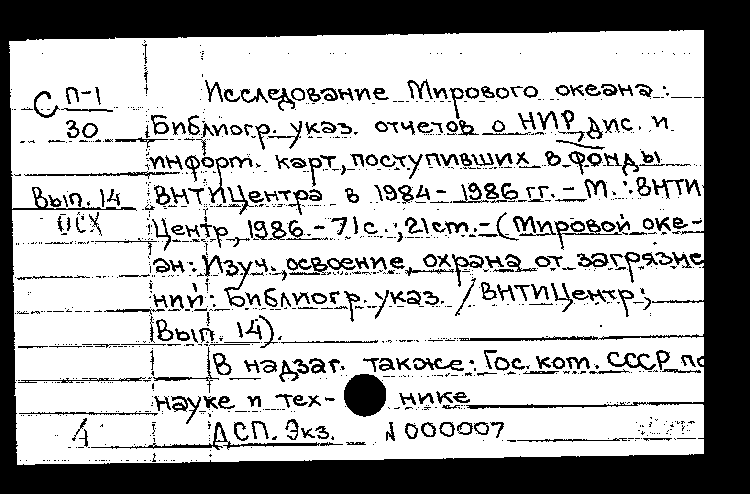 С П-1
30
Исследование Мирового океана:
Библиогр. указ. отчетов о НИР, дис. и
информ. карт, поступивших в фонды
Вып. 14
ОСХ
ВНТИЦентра в 1984-1986 гг. - М.: ВНТИ
Центр, 1986. - 71с.; 21см. - (Мировой оке-
ан: Изуч., освоение, охрана от загрязне
ний: Библиогр. указ. / ВНТИЦентр;
Вып. 14).
В надзаг. также: Гос. ком. СССР по
науке и тех- нике
А
ДСП. Экз. N 000007